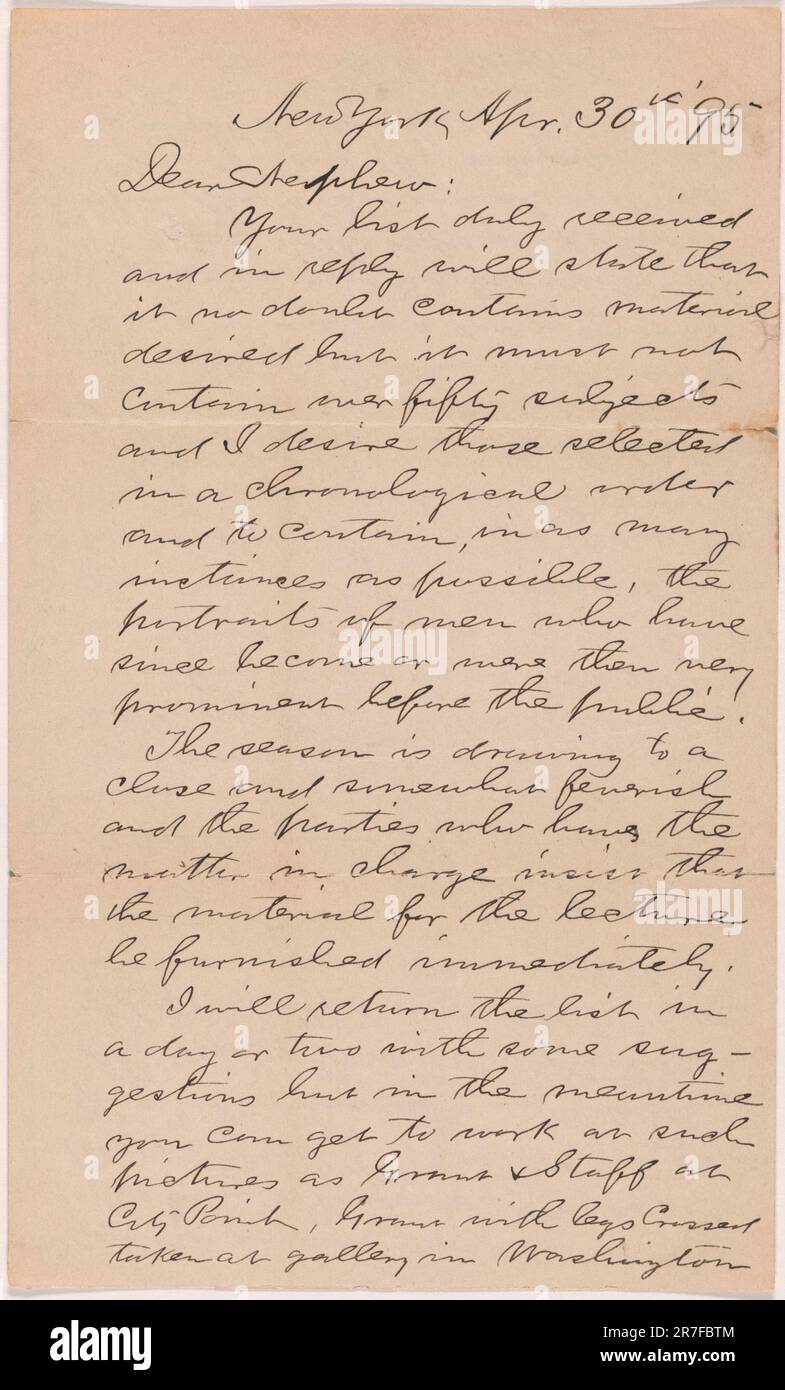 New York, Apr. 30th '95
Dear Nephew:
Your list duly received
and in reply will state that
it no doubt contains material
desired but it must not
contain over fifty subjects
and I desire those selected
in a chronological order
and to contain, in as many
instances as possible, the
portraits of men who have
since become or were then very
prominent before the public.
The season is drawing to a
close and somewhat feverish
and the parties who have the
matter in charge insist that
the material for the lecture
be furnished immediately.
I will return the list in
a day or two with some sug-
gestions but in the meantime
you can get to work at such
pictures as Grant & Staff at
City Point, Grant with legs Crossed
taken at gallery in Washington
alamy
Image ID: 2R7FBTM
www.alamy.com